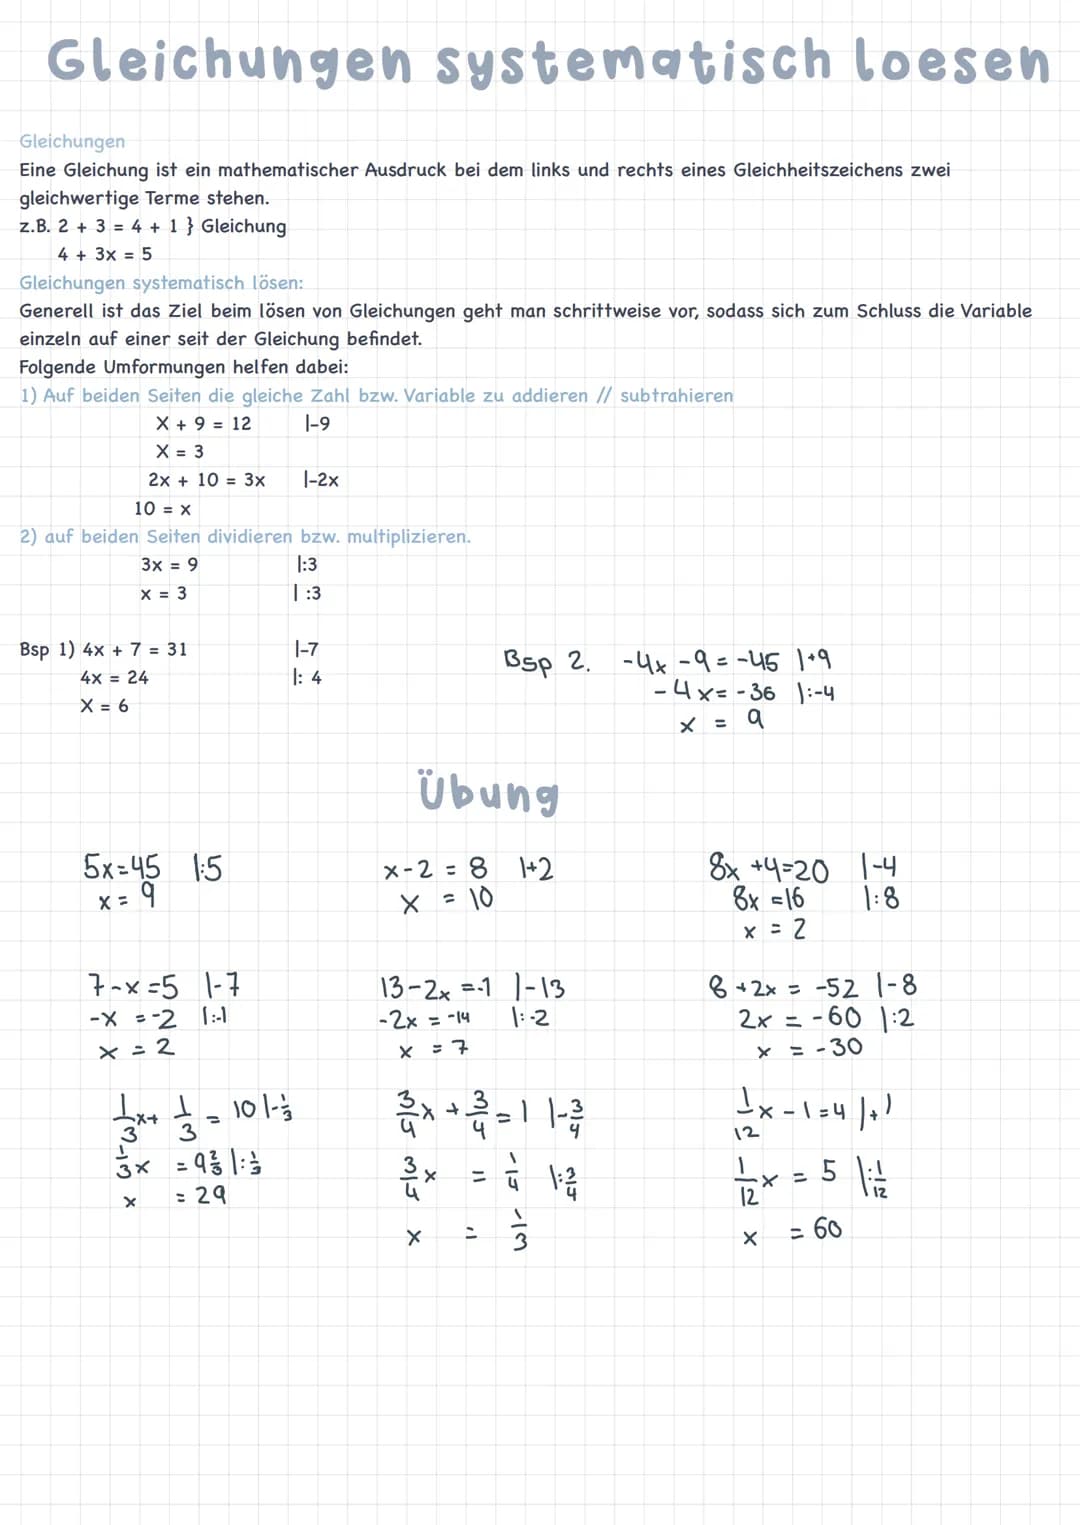 Gleichungen systematisch loesen
Gleichungen
Eine Gleichung ist ein mathematischer Ausdruck bei dem links und rechts eines Gleichheitszeichens zwei
gleichwertige Terme stehen.
z.B. 2 + 3 = 4 + 1 } Gleichung
4 + 3x = 5
Gleichungen systematisch lösen:
Generell ist das Ziel beim lösen von Gleichungen geht man schrittweise vor, sodass sich zum Schluss die Variable
einzeln auf einer seit der Gleichung befindet.
Folgende Umformungen helfen dabei:
1) Auf beiden Seiten die gleiche Zahl bzw. Variable zu addieren // subtrahieren
X + 9 = 12 |-9
X = 3
2x + 10 = 3x |-2x
10 = x
2) auf beiden Seiten dividieren bzw. multiplizieren.
3x = 9 |:3
x = 3 | :3
Bsp 1) 4x + 7 = 31 |-7
4x = 24 |: 4
X = 6
Bsp 2. -4x -9 = -45 |+9
-4x = -36 |:-4
x = 9
Übung
5x=45 |:5
x = 9
x-2 = 8 |+2
x = 10
8x +4=20 |-4
8x =16 |:8
x = 2
7-x =5 |-7
-x =-2 |:-1
x = 2
13-2x =-1 |-13
-2x = -14 |:-2
x = 7
8 +2x = -52 |-8
2x = -60 |:2
x = -30
1/3 x+ 1/3 = 10 |-1/3
1/3 x = 9 2/3 |:1/3
x = 29
3/4 x + 3/4 = 1 |-3/4
3/4 x = 1/4 |:3/4
x = 1/3
1/12 x - 1 = 4 |+1
1/12 x = 5 |:1/12
x = 60